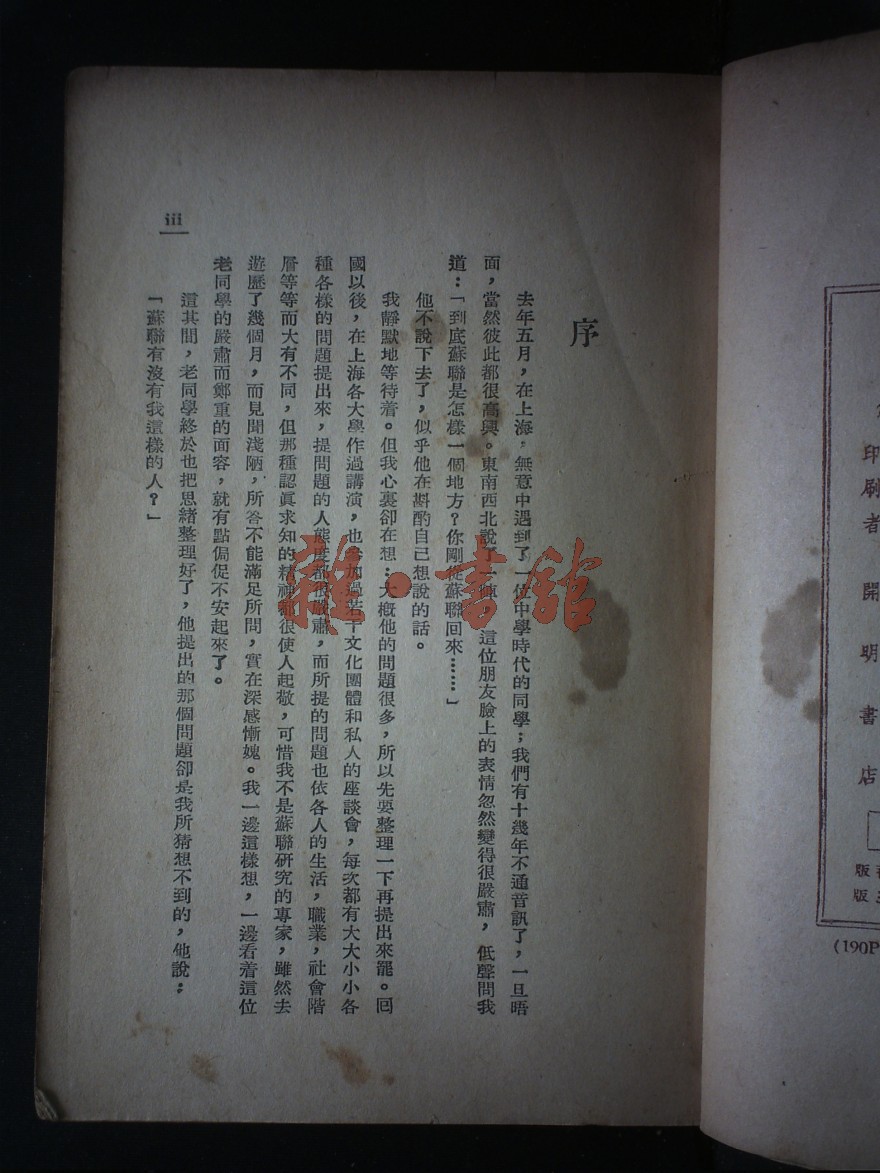 序
去年五月，在上海，無意中遇到了一位中學時代的同學；我們有十幾年不通音訊了，一旦晤
面，當然彼此都很高興。東南西北說了一陣，這位朋友臉上的表情忽然變得很嚴肅，低聲問我
道：「到底蘇聯是怎樣一個地方？你剛從蘇聯回來……」
他不說下去了，似乎他在斟酌自己想說的話。
我靜默地等待着。但我心裏卻在想：大概他的問題很多，所以先要整理一下再提出來罷。回
國以後，在上海各大學作過講演，也參加過若干文化團體和私人的座談會，每次都有大大小小各
種各樣的問題提出來，提問題的人態度都很嚴肅，而所提的問題也依各人的生活，職業，社會階
層等等而大有不同，但那種認眞求知的精神都很使人起敬，可惜我不是蘇聯硏究的專家，雖然去
遊歷了幾個月，而見聞淺陋，所答不能滿足所問，實在深感慚媿。我一邊這樣想，一邊看着這位
老同學的嚴肅而鄭重的面容，就有點侷促不安起來了。
這其間，老同學終於也把思緒整理好了，他提出的那個問題卻是我所猜想不到的，他說：
「蘇聯有沒有我這樣的人？」
iii
雜·書館
印刷者 開明書店
(190P